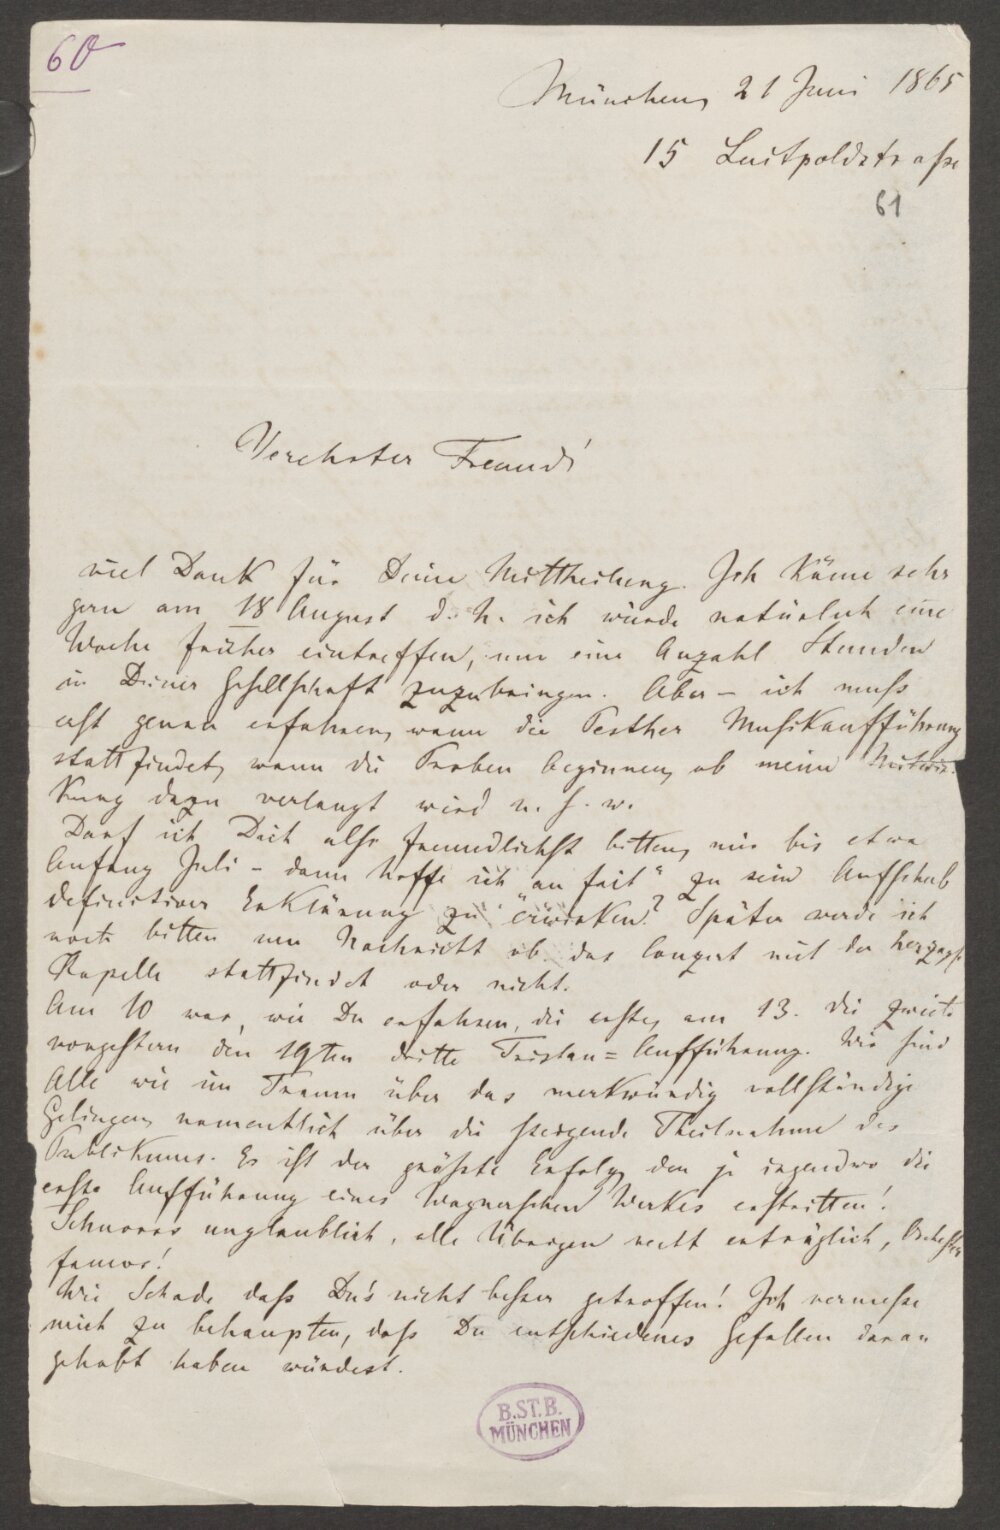 60
München, 21 Juni 1865
15 Luitpoldstrasse
61
Verehrter Freund!
viel Dank für Deine Mittheilung. Ich käme sehr
gern am 18 August d. h. ich würde natürlich eine
Woche früher eintreffen, um eine Anzahl Stunden
in Deiner Gesellschaft zuzubringen. Aber – ich muss
erst genau erfahren, wann die Pesther Musikaufführung
stattfindet, wann die Proben beginnen, ob meine Mitwir-
kung dazu verlangt wird u. s. w.
Darf ich Dich also freundlichst bitten, mir bis etwa
Anfang Juli – dann hoffe ich „au fait“ zu sein Aufschub
definitiver Erklärung zu erwirken? Später werde ich
noch bitten um Nachricht ob das Conzert mit der
Kapelle stattfindet oder nicht.
Am 10 war, wie Du erfahren, die erste, am 13. die zweite
vorgestern den 19ten dritte Tristan=Aufführung. Wir sind
Alle wie im Traum über das merkwürdig vollständige
Gelingen, namentlich über die steigende Theilnahme des
Publikums. Es ist der größte Erfolg, den je irgendwo die
erste Aufführung eines Wagnerschen Werkes erstritten!
Schnorrs unglaublich, alle Übrigen recht erträglich, Orchester
famos!
Wie Schade dass Du's nicht besser getroffen! Ich vermesse
mich zu behaupten, dass Du entschiedenes Gefallen daran
gehabt haben würdest.
B.ST.B.
MÜNCHEN